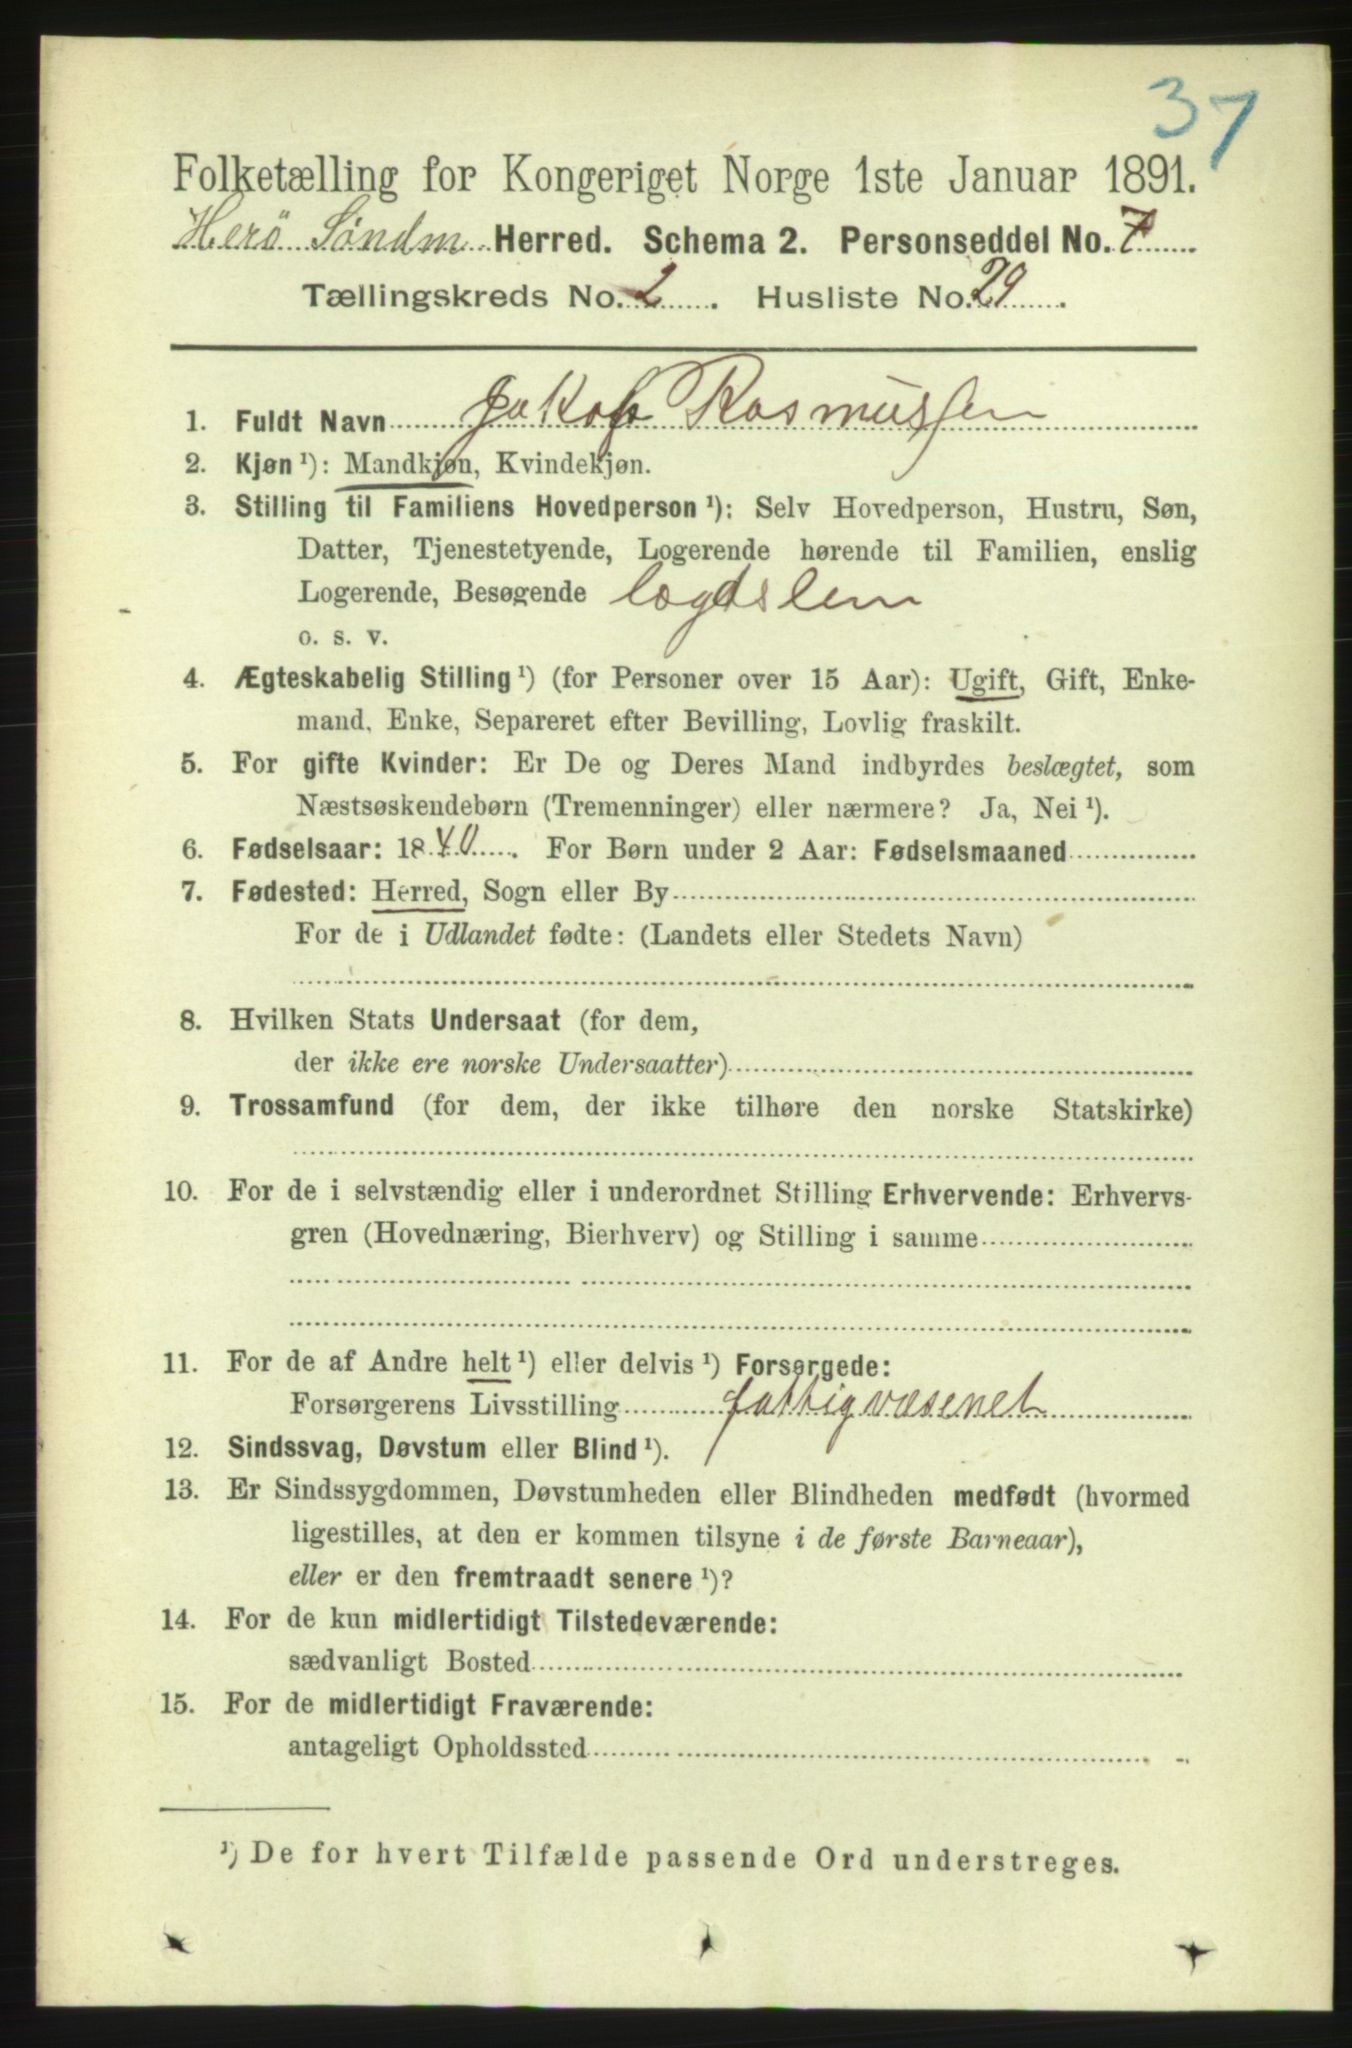 37
Folketælling for Kongeriget Norge 1ste Januar 1891.
Herö Søndm Herred. Schema 2. Personseddel No. 7
Tællingskreds No. 2. Husliste No. 29.
1. Fuldt Navn Jakob Rasmussen
2. Kjøn ¹): Mandkjøn, Kvindekjøn.
3. Stilling til Familiens Hovedperson ¹): Selv Hovedperson, Hustru, Søn,
Datter, Tjenestetyende, Logerende hørende til Familien, enslig
Logerende, Besøgende lægdslem
o. s. v.
4. Ægteskabelig Stilling ¹) (for Personer over 15 Aar): Ugift, Gift, Enke-
mand, Enke, Separeret efter Bevilling, Lovlig fraskilt.
5. For gifte Kvinder: Er De og Deres Mand indbyrdes beslægtet, som
Næstsøskendebørn (Tremenninger) eller nærmere? Ja, Nei ¹).
6. Fødselsaar: 1840. For Børn under 2 Aar: Fødselsmaaned
7. Fødested: Herred, Sogn eller By
For de i Udlandet fødte: (Landets eller Stedets Navn)
8. Hvilken Stats Undersaat (for dem,
der ikke ere norske Undersaatter)
9. Trossamfund (for dem, der ikke tilhøre den norske Statskirke)
10. For de i selvstændig eller i underordnet Stilling Erhvervende: Erhvervs-
gren (Hovednæring, Bierhverv) og Stilling i samme
11. For de af Andre helt ¹) eller delvis ¹) Forsørgede:
Forsørgerens Livsstilling fattigvæsenet
12. Sindssvag, Døvstum eller Blind ¹).
13. Er Sindssygdommen, Døvstumheden eller Blindheden medfødt (hvormed
ligestilles, at den er kommen tilsyne i de første Barneaar),
eller er den fremtraadt senere ¹)?
14. For de kun midlertidigt Tilstedeværende:
sædvanligt Bosted
15. For de midlertidigt Fraværende:
antageligt Opholdssted
¹) De for hvert Tilfælde passende Ord understreges.